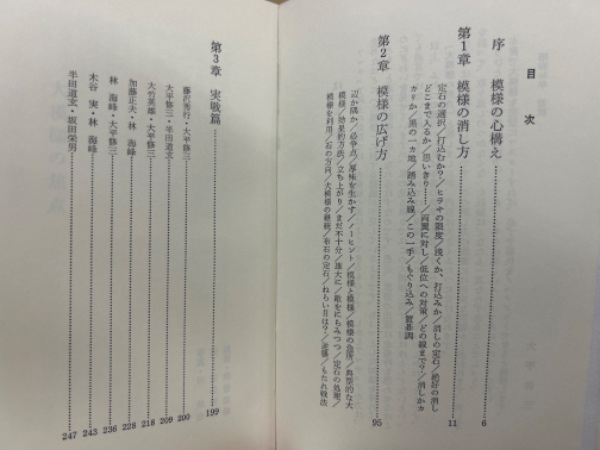 目次
序 模様の心構え……6
第1章 模様の消し方……11
定石の選択/打込むか?/ヒラキの限度/浅くか、打込みか/消しの定石/絶好の消し
どこまで入るか/思いきり……/両翼に対し/低位への対策/どの線まで?/消しかカ
カリか/黒の一カ地/踏み込み線/この一手/もぐり込み/置碁調
第2章 模様の広げ方……95
辺か隅か/必争点/厚味を生かす/ノーヒント/模様と模様/模様の急所/典型的な大
模様/効果的方法/立ち上がり/まだ不十分/雄大に/敵をにらみつつ/定石の処理/
模様を利用/石の方向/大模様の継続/布石の定石/ねらい目は?/逆襲/もたれ戦法
第3章 実戦篇……199
藤沢秀行・大平修三……200
大平修三・半田道玄……209
大竹英雄・大平修三……218
加藤正夫・林 海峰……228
林 海峰・大平修三……236
木谷 実・林 海峰……243
半田道玄・坂田栄男……247